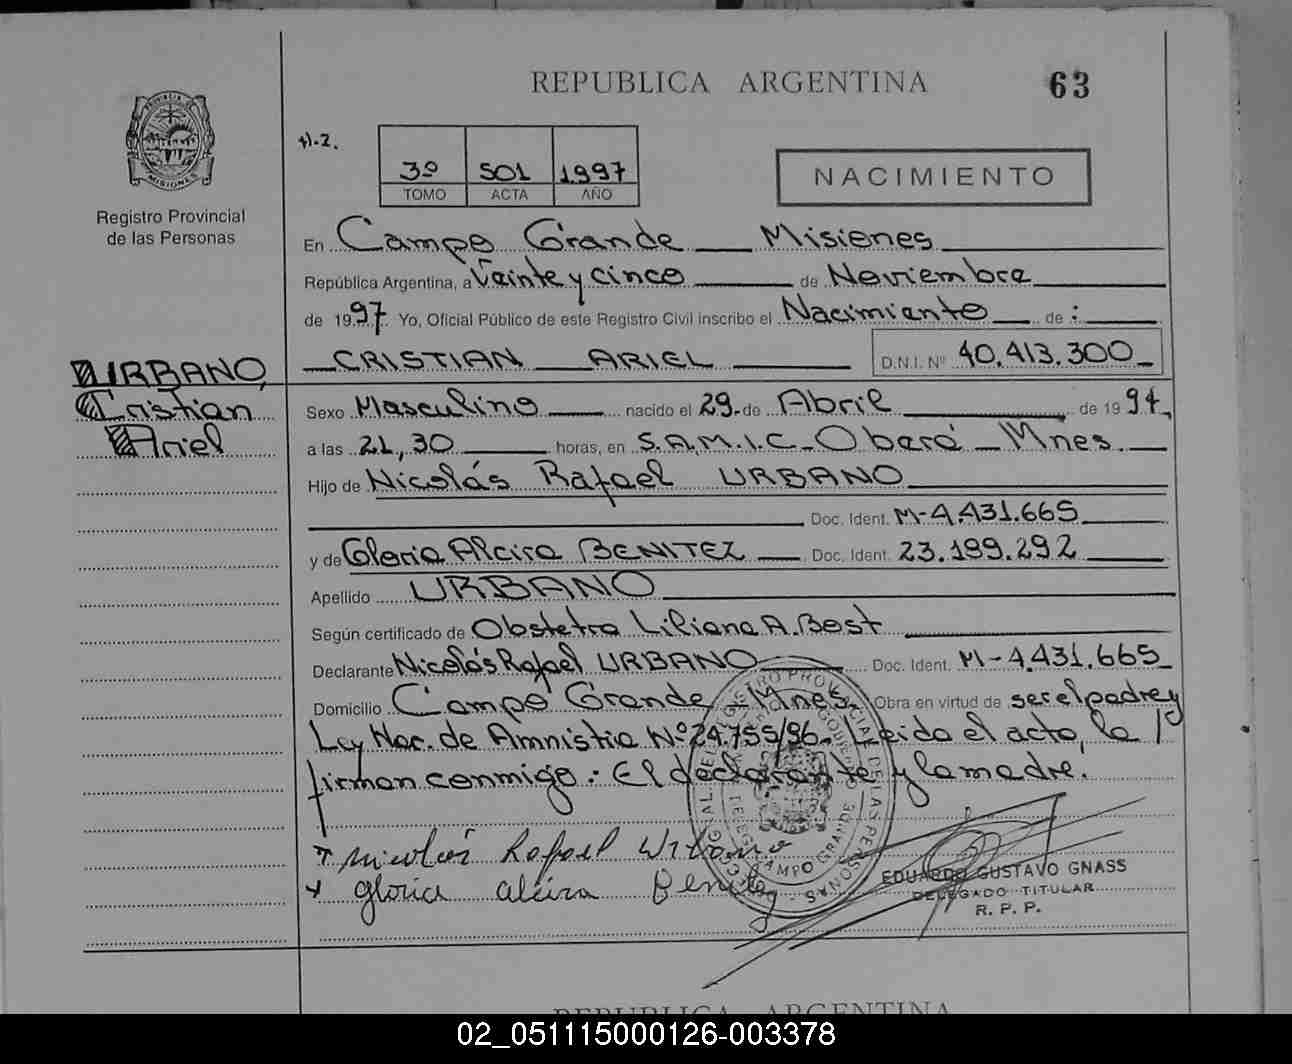 REPUBLICA ARGENTINA
63
PROVINCIA DE MISIONES
Registro Provincial
de las Personas
H-2.
3º 501 1997
TOMO ACTA AÑO
NACIMIENTO
En Campo Grande Misiones
República Argentina, a Veinte y Cinco de Noviembre
de 1997 Yo, Oficial Público de este Registro Civil inscribo el Nacimiento de :
CRISTIAN ARIEL D.N.I. Nº 40.413.300
URBANO,
Cristian
Ariel
Sexo Masculino nacido el 29 de Abril de 1994
a las 21,30 horas, en S.A.M.I.C. Oberá - Mnes.
Hijo de Nicolás Rafael URBANO
Doc. Ident. M-4.431.665
y de Gloria Alcira BENITEZ Doc. Ident. 23.189.292
Apellido URBANO
Según certificado de Obstetra Liliana A. Bost
Declarante Nicolás Rafael URBANO Doc. Ident. M-4.431.665
Domicilio Campo Grande - Mnes. Obra en virtud de ser el padre y
Ley Nac. de Amnistia Nº 24.755/96. Leida el acta, la
firman conmigo: El declarante y la madre.
Nicolás Rafael Urbano
gloria alcira Benitez
EDUARDO GUSTAVO GNASS
DELEGADO TITULAR
R. P. P.
REPUBLICA ARGENTINA
02_051115000126-003378